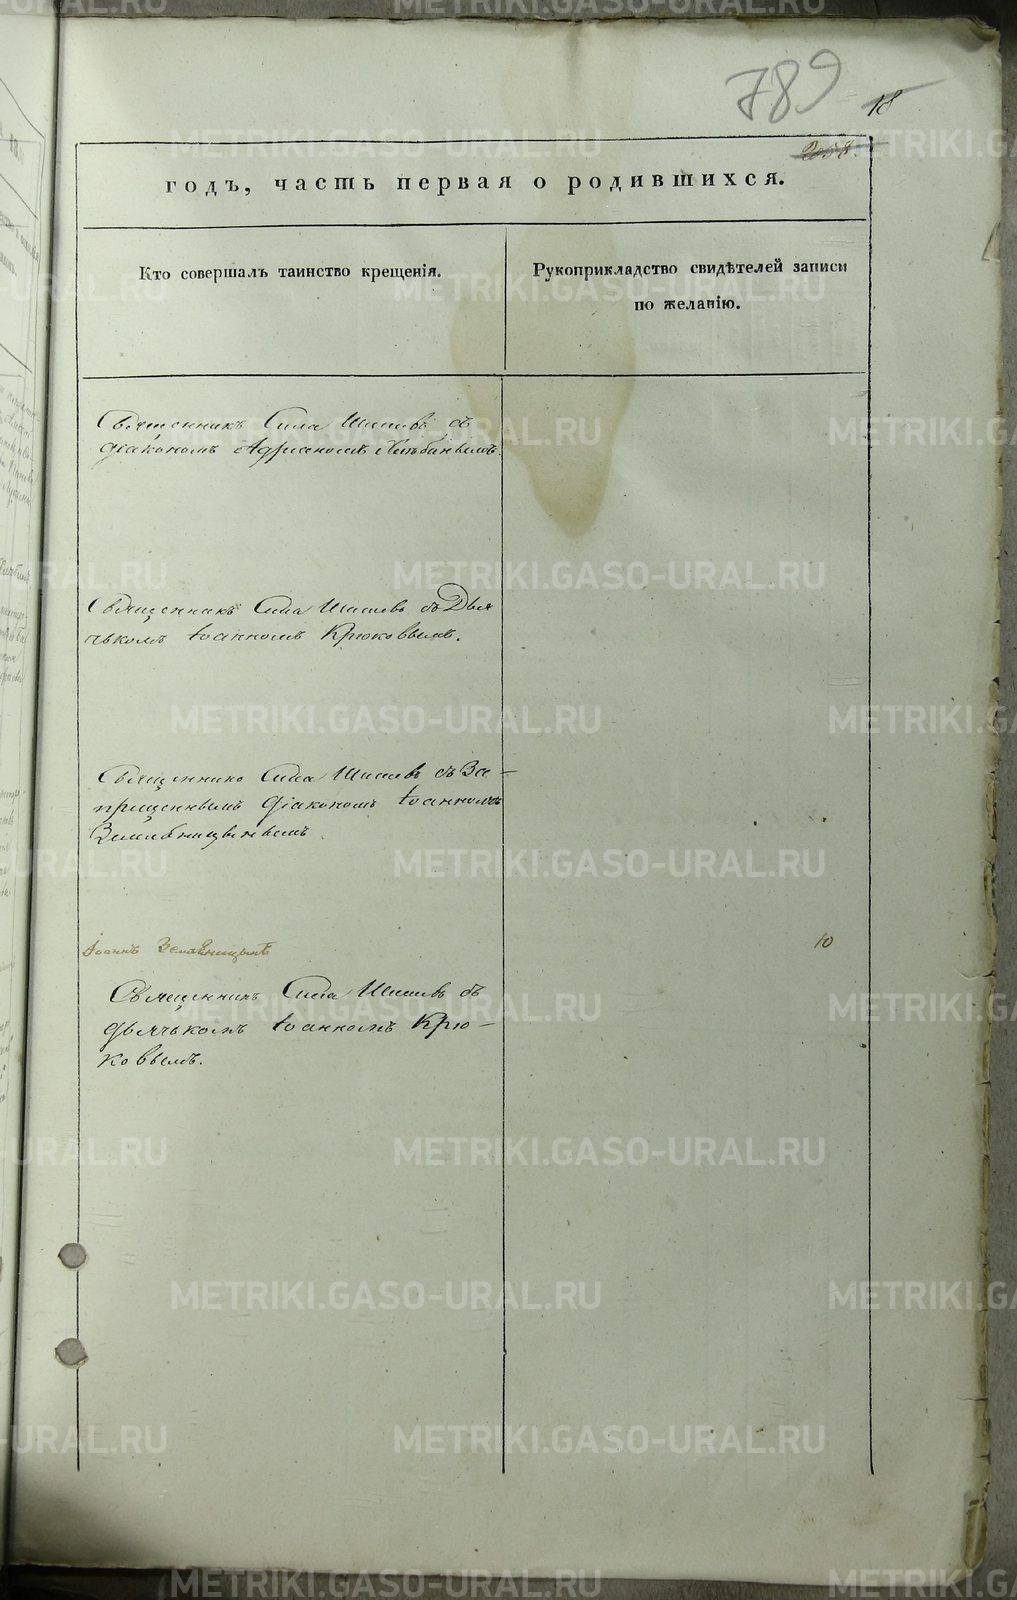 789
18
2058.
годъ, часть первая о родившихся.
Кто совершалъ таинство крещенія.
Рукоприкладство свидѣтелей записи
по желанію.
Священникъ Сила Шишевъ съ
діакономъ Адрианомъ Хлѣбинымъ.
Священникъ Сила Шишевъ съ Дья
чькомъ Іоанномъ Крюковымъ.
Священникъ Сила Шишевъ съ За-
прещеннымъ діакономъ Іоанномъ
Земляницынымъ
Іоаннъ Земляницынъ
10
Священникъ Сила Шишевъ съ
дьячькомъ Іоанномъ Крю-
ковымъ.
METRIKI.GASO-URAL.RU